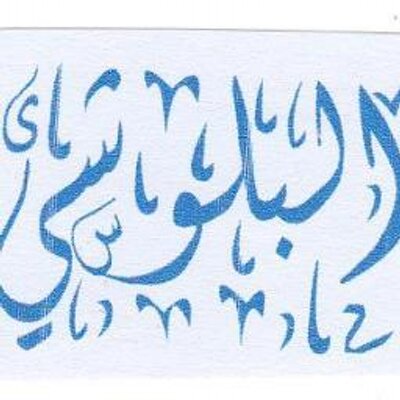 البلوشي